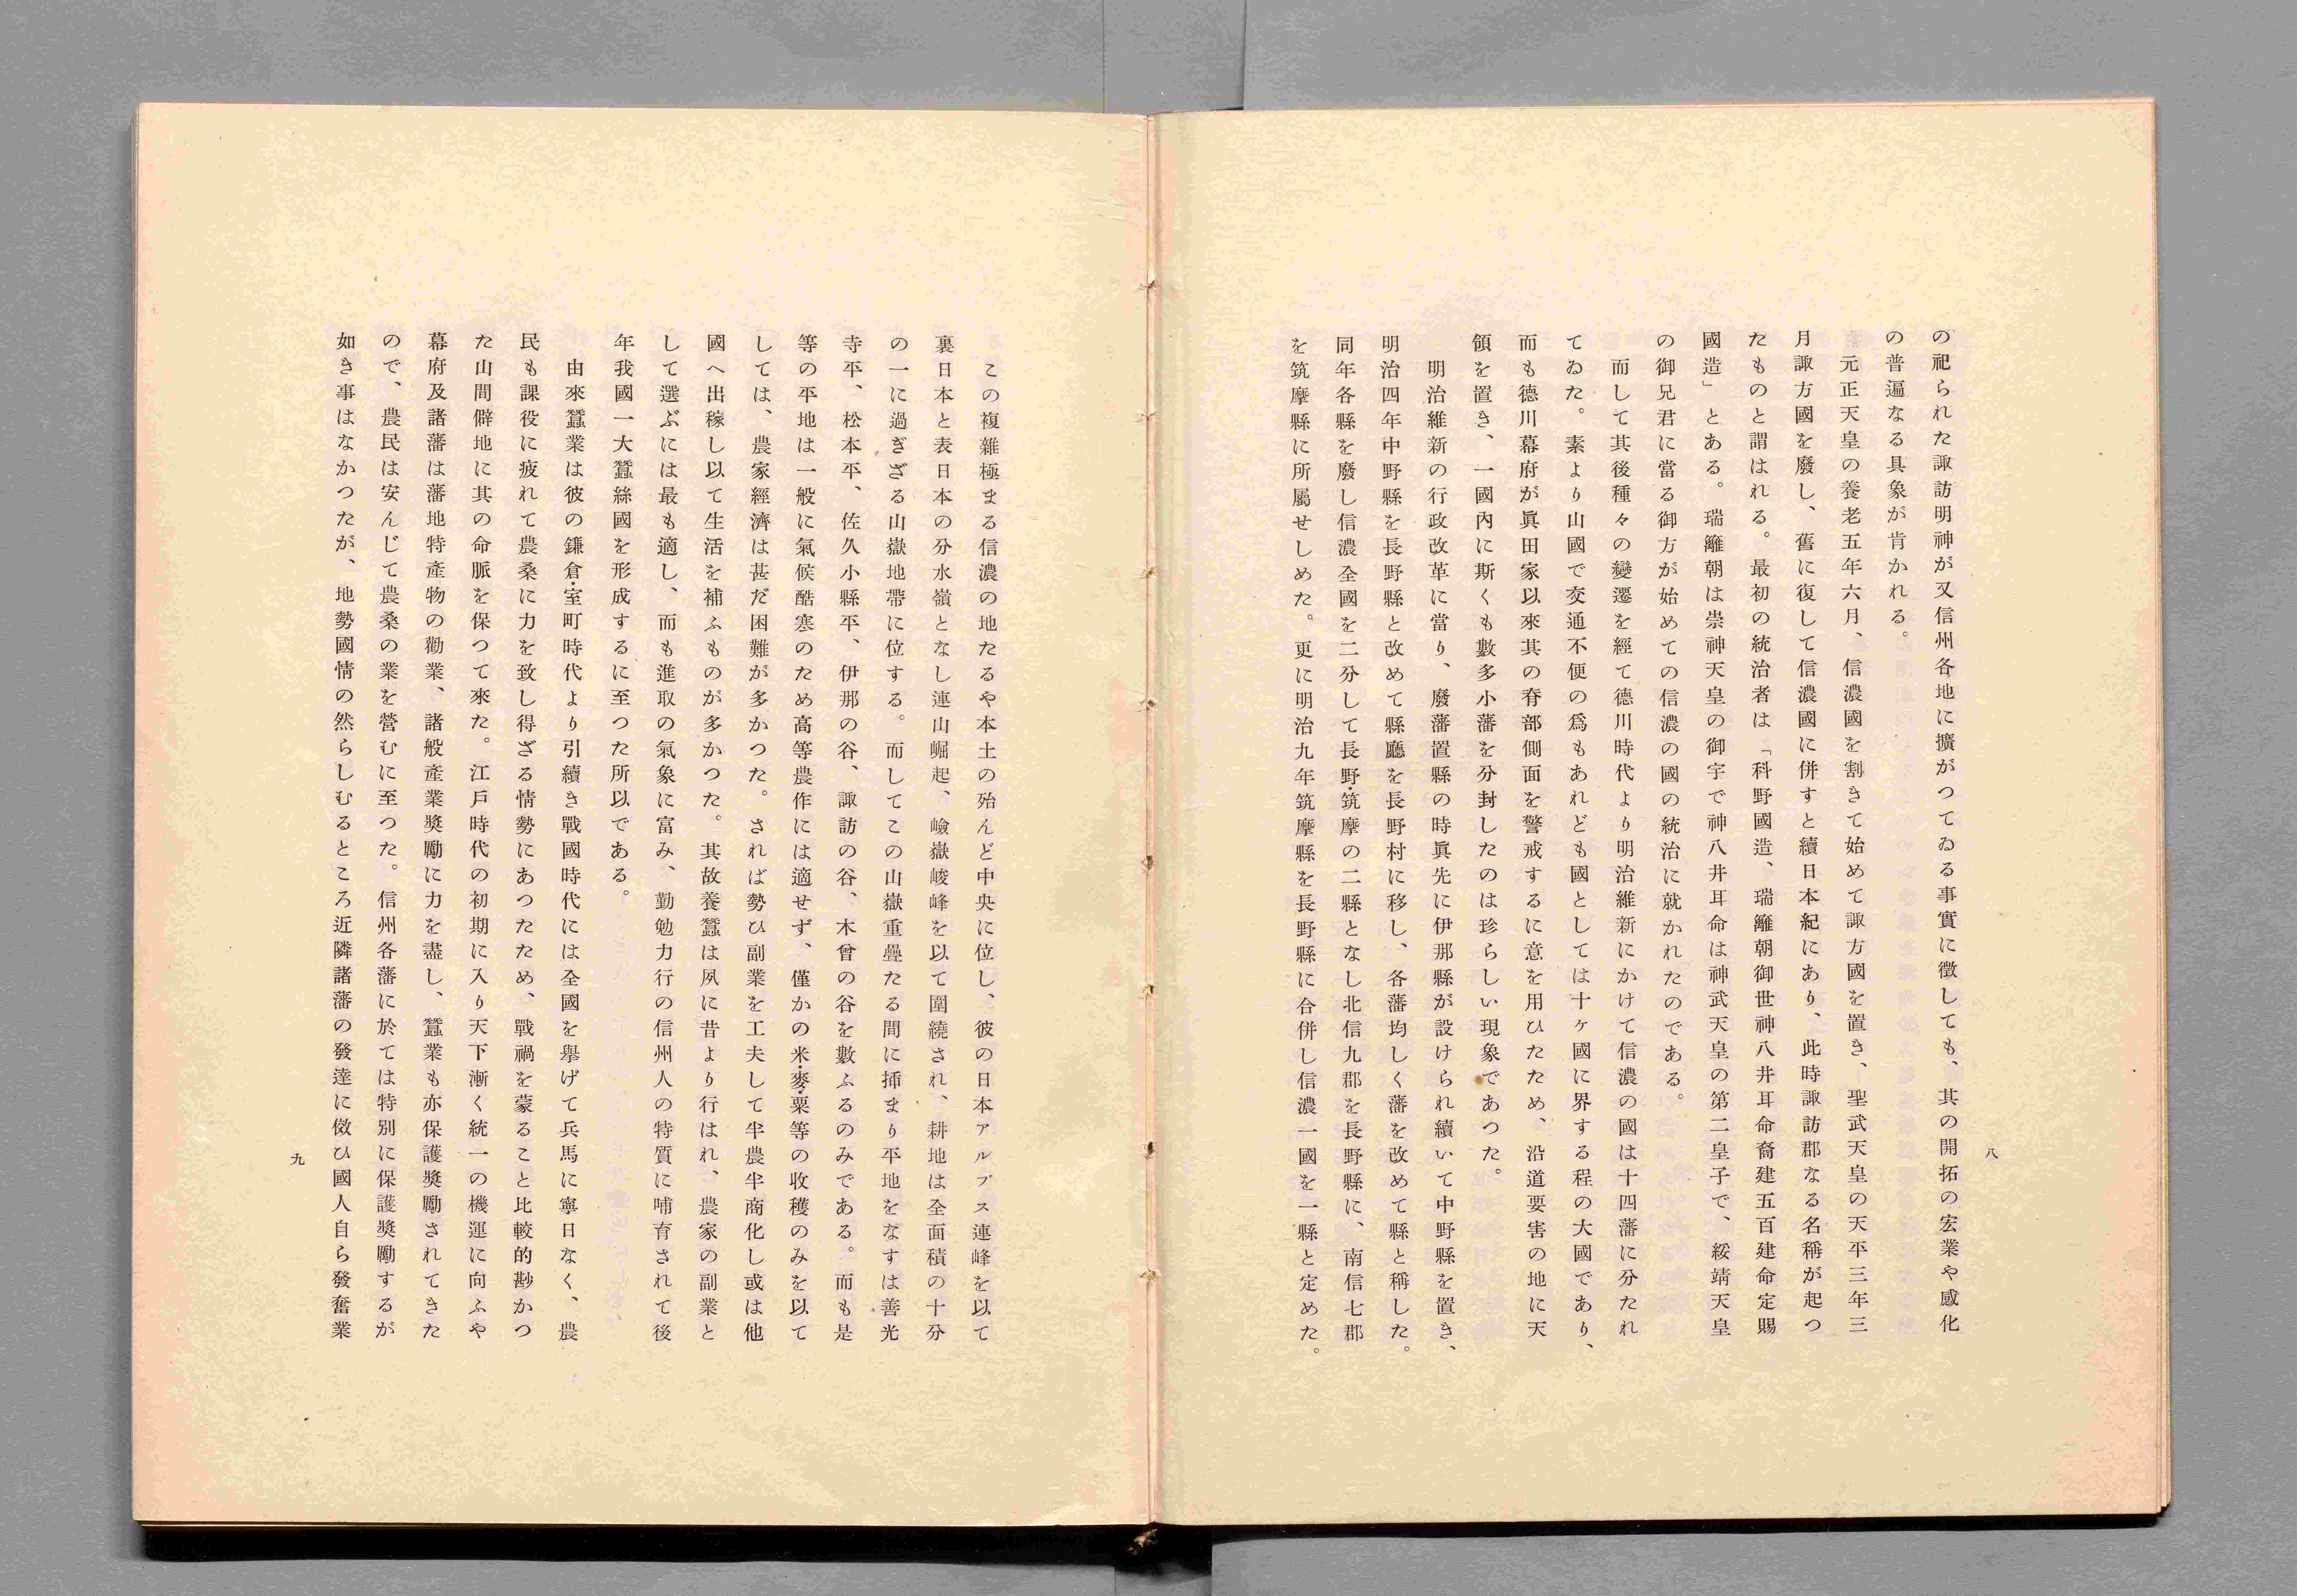 八
の祀られた諏訪明神が又信州各地に擴がつてゐる事實に徴しても、其の開拓の宏業や感化
の普遍なる具象が肯かれる。
元正天皇の養老五年六月、信濃國を割きて始めて諏方國を置き、聖武天皇の天平三年三
月諏方國を廢し、舊に復して信濃國に併すと續日本紀にあり、此時諏訪郡なる名稱が起つ
たものと謂はれる。最初の統治者は「科野國造、瑞籬朝御世神八井耳命裔建五百建命定賜
國造」とある。瑞籬朝は崇神天皇の御宇で神八井耳命は神武天皇の第二皇子で、綏靖天皇
の御兄君に當る御方が始めての信濃の國の統治に就かれたのである。
而して其後種々の變遷を經て德川時代より明治維新にかけて信濃の國は十四藩に分たれ
てゐた。素より山國で交通不便の爲もあれども國としては十ヶ國に界する程の大國であり、
而も德川幕府が眞田家以來其の脊部側面を警戒するに意を用ひたため、沿道要害の地に天
領を置き、一國內に斯くも數多小藩を分封したのは珍らしい現象であつた。
明治維新の行政改革に當り、廢藩置縣の時眞先に伊那縣が設けられ續いて中野縣を置き、
明治四年中野縣を長野縣と改めて縣廳を長野村に移し、各藩均しく藩を改めて縣と稱した。
同年各縣を廢し信濃全國を二分して長野・筑摩の二縣となし北信九郡を長野縣に、南信七郡
を筑摩縣に所屬せしめた。更に明治九年筑摩縣を長野縣に合併し信濃一國を一縣と定めた。
この複雜極まる信濃の地たるや本土の殆んど中央に位し、彼の日本アルプス連峰を以て
裏日本と表日本の分水嶺となし連山崛起、嶮嶽峻峰を以て圍繞され、耕地は全面積の十分
の一に過ぎざる山嶽地帶に位する。而してこの山嶽重疊たる間に挿まり平地をなすは善光
寺平、松本平、佐久小縣平、伊那の谷、諏訪の谷、木曾の谷を數ふるのみである。而も是
等の平地は一般に氣候酷寒のため高等農作には適せず、僅かの米・麥・粟等の收穫のみを以て
しては、農家經濟は甚だ困難が多かつた。されば勢ひ副業を工夫して半農半商化し或は他
國へ出稼し以て生活を補ふものが多かつた。其故養蠶は夙に昔より行はれ、農家の副業と
して選ぶには最も適し、而も進取の氣象に富み、勤勉力行の信州人の特質に哺育されて後
年我國一大蠶絲國を形成するに至つた所以である。
由來蠶業は彼の鎌倉・室町時代より引續き戰國時代には全國を擧げて兵馬に寧日なく、農
民も課役に疲れて農桑に力を致し得ざる情勢にあつたため、戰禍を蒙ること比較的尠かつ
た山間僻地に其の命脈を保つて來た。江戶時代の初期に入り天下漸く統一の機運に向ふや
幕府及諸藩は藩地特產物の勸業、諸般產業獎勵に力を盡し、蠶業も亦保護獎勵されてきた
ので、農民は安んじて農桑の業を營むに至つた。信州各藩に於ては特別に保護獎勵するが
如き事はなかつたが、地勢國情の然らしむるところ近隣諸藩の發達に傚ひ國人自ら發奮業
九